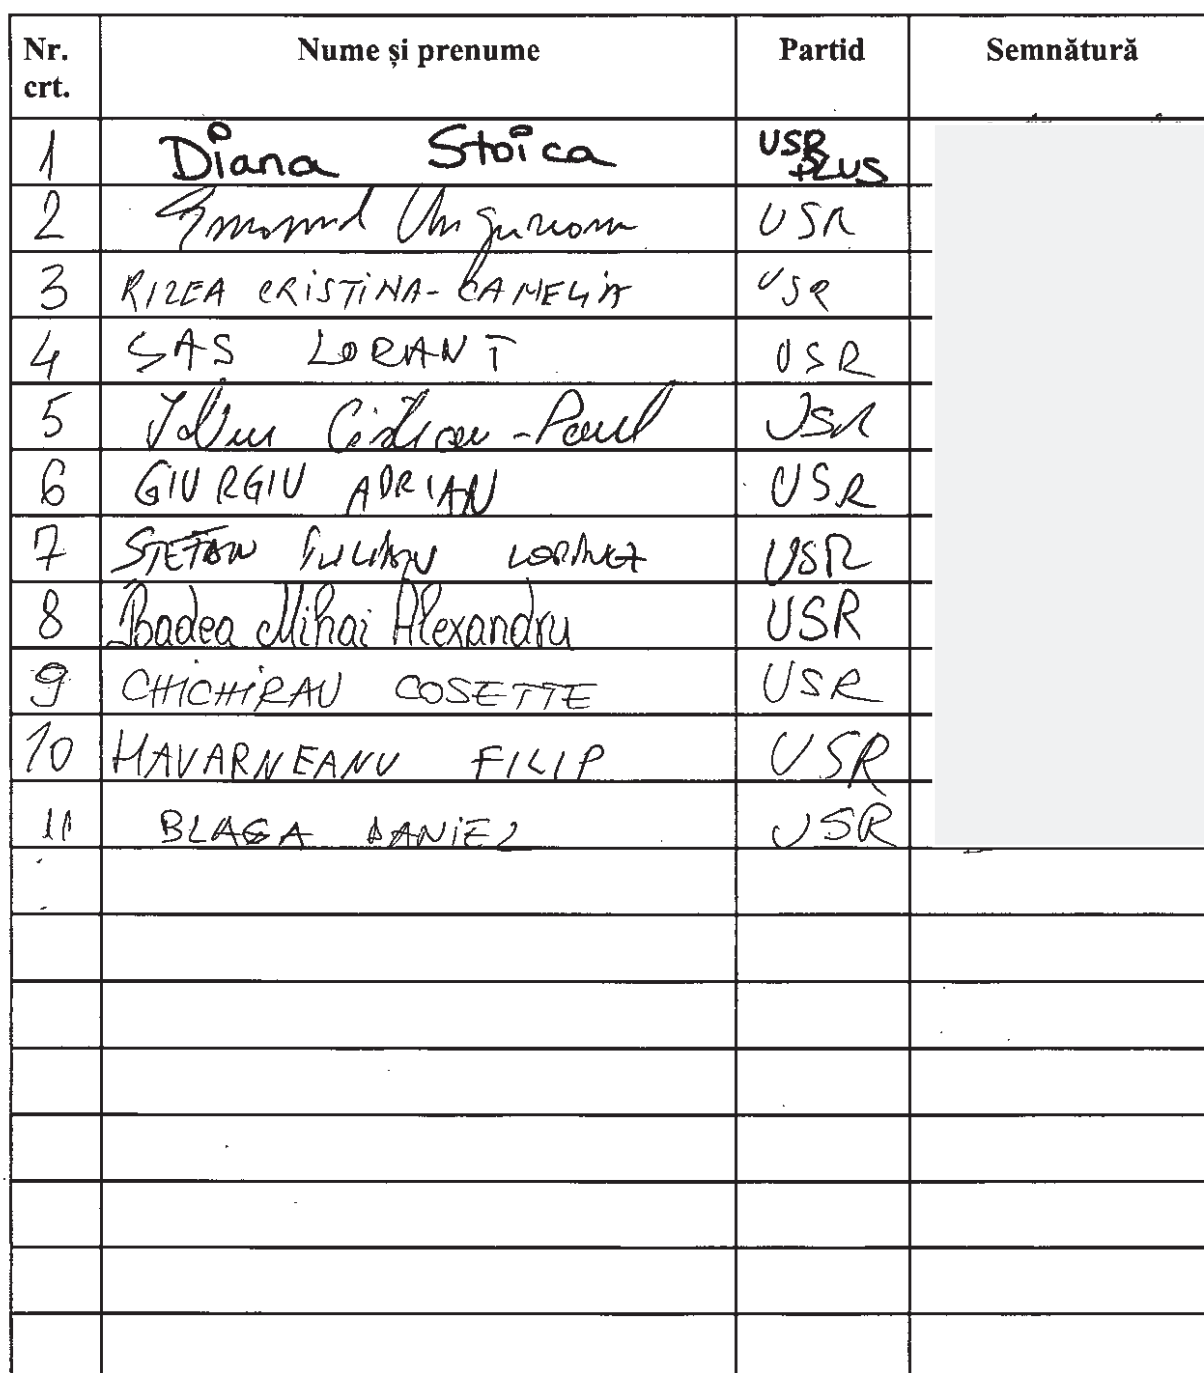 Nr. crt. Nume și prenume Partid Semnătură
1 Diana Stoica USR PLUS
2 Emanuel Ungureanu USR
3 RIZEA CRISTINA-CAMELIA USR
4 SAS LORANT USR
5 Cristian-Paul USR
6 GIURGIU ADRIAN USR
7 STEFAN IULIAN LORINCZ USR
8 Badea Mihai Alexandru USR
9 CHICHIRAU COSETTE USR
10 HAVARNEANU FILIP USR
11 BLAGA DANIEL USR